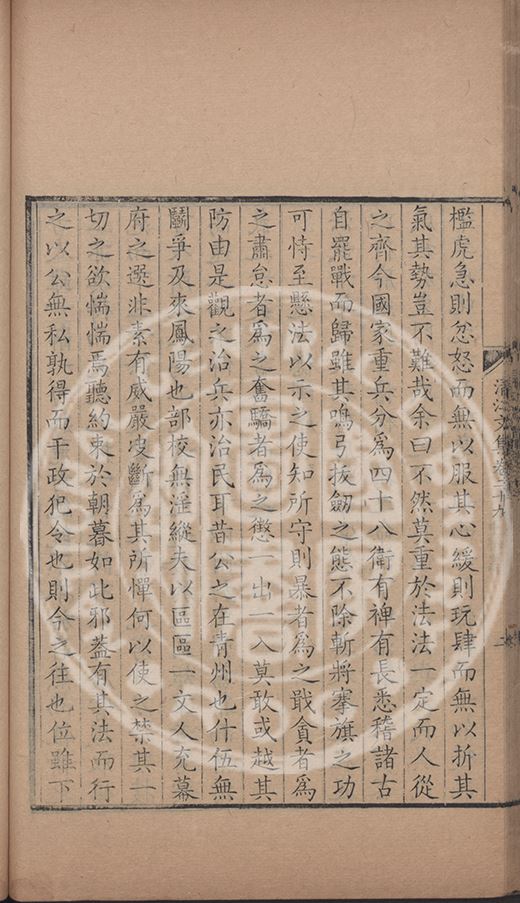 檻虎急則忿怒而無以服其心緩則玩肆而無以折其
氣其勢豈不難哉余曰不然莫重於法法一定而人從
之齊今國家重兵分為四十八衛有禆有長悉稽諸古
自罷戰而歸雖其鳴弓拔劒之態不除斬將搴旗之功
可恃至懸法以示之使知所守則暴者為之戢貪者為
之肅怠者為之奮驕者為之懲一出一入莫敢或越其
防由是觀之治兵亦治民耳昔公之在青州也什伍無
鬬爭及來鳳陽也部校無淫縱夫以區區一文人充幕
府之選非素有威嚴皮斷為其所憚何以使之禁其一
切之欲惴惴焉聽約束於朝暮如此邪葢有其法而行
之以公無私孰得而干政犯令也則今之往也位雖下
清江文集卷二十九